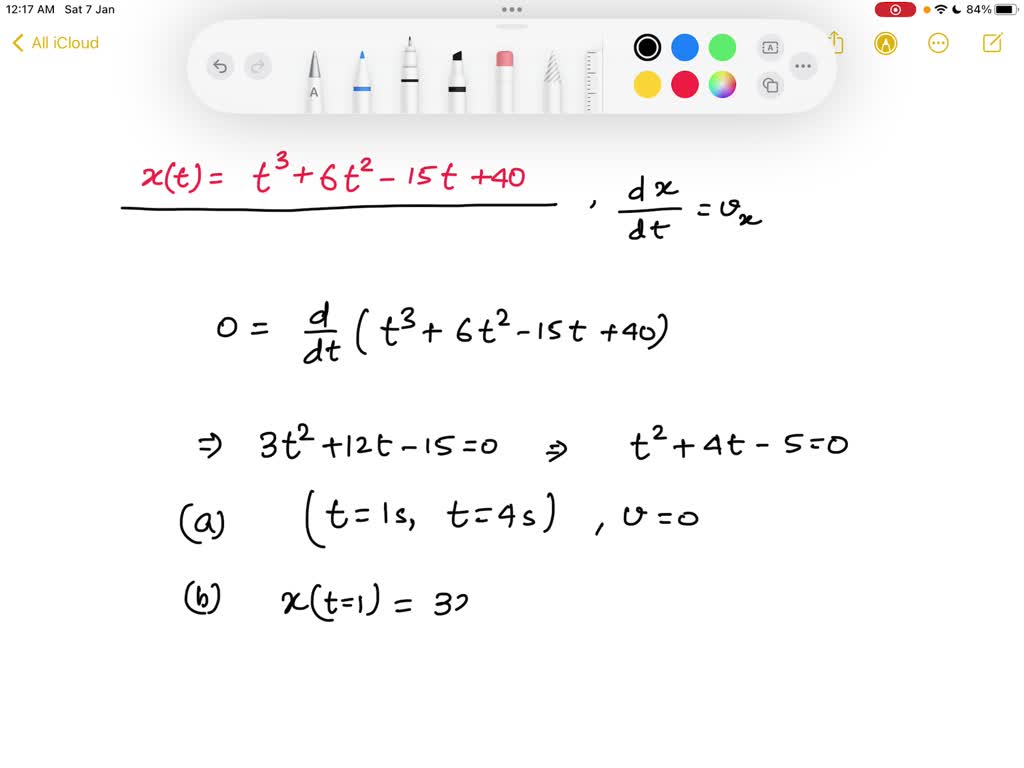 12:17 AM Sat 7 Jan
84%
All iCloud
A
A
x(t) = t³ + 6t² - 15t + 40
, dx/dt = vₓ
0 = d/dt (t³ + 6t² - 15t + 40)
⇒ 3t² + 12t - 15 = 0 ⇒ t² + 4t - 5 = 0
(a) (t = 1s, t = 4s) , v = 0
(b) x(t=1) = 32